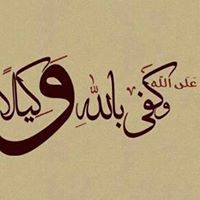 عَلَى اللَّه
وَكَفَى بِاللَّهِ وَكِيلًا